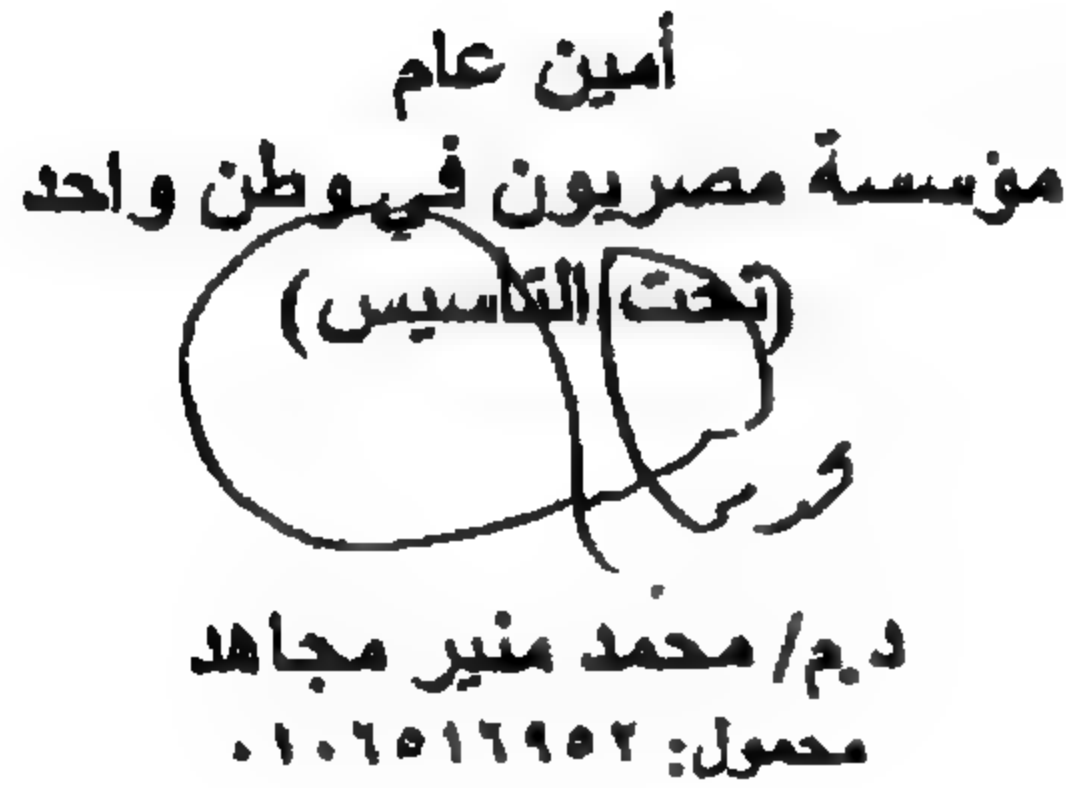 أمين عام
مؤسسة مصريون في وطن واحد
(تحت التأسيس)
د.م/ محمد منير مجاهد
محمول: ٠١٠٦٥١٦٩٥٢